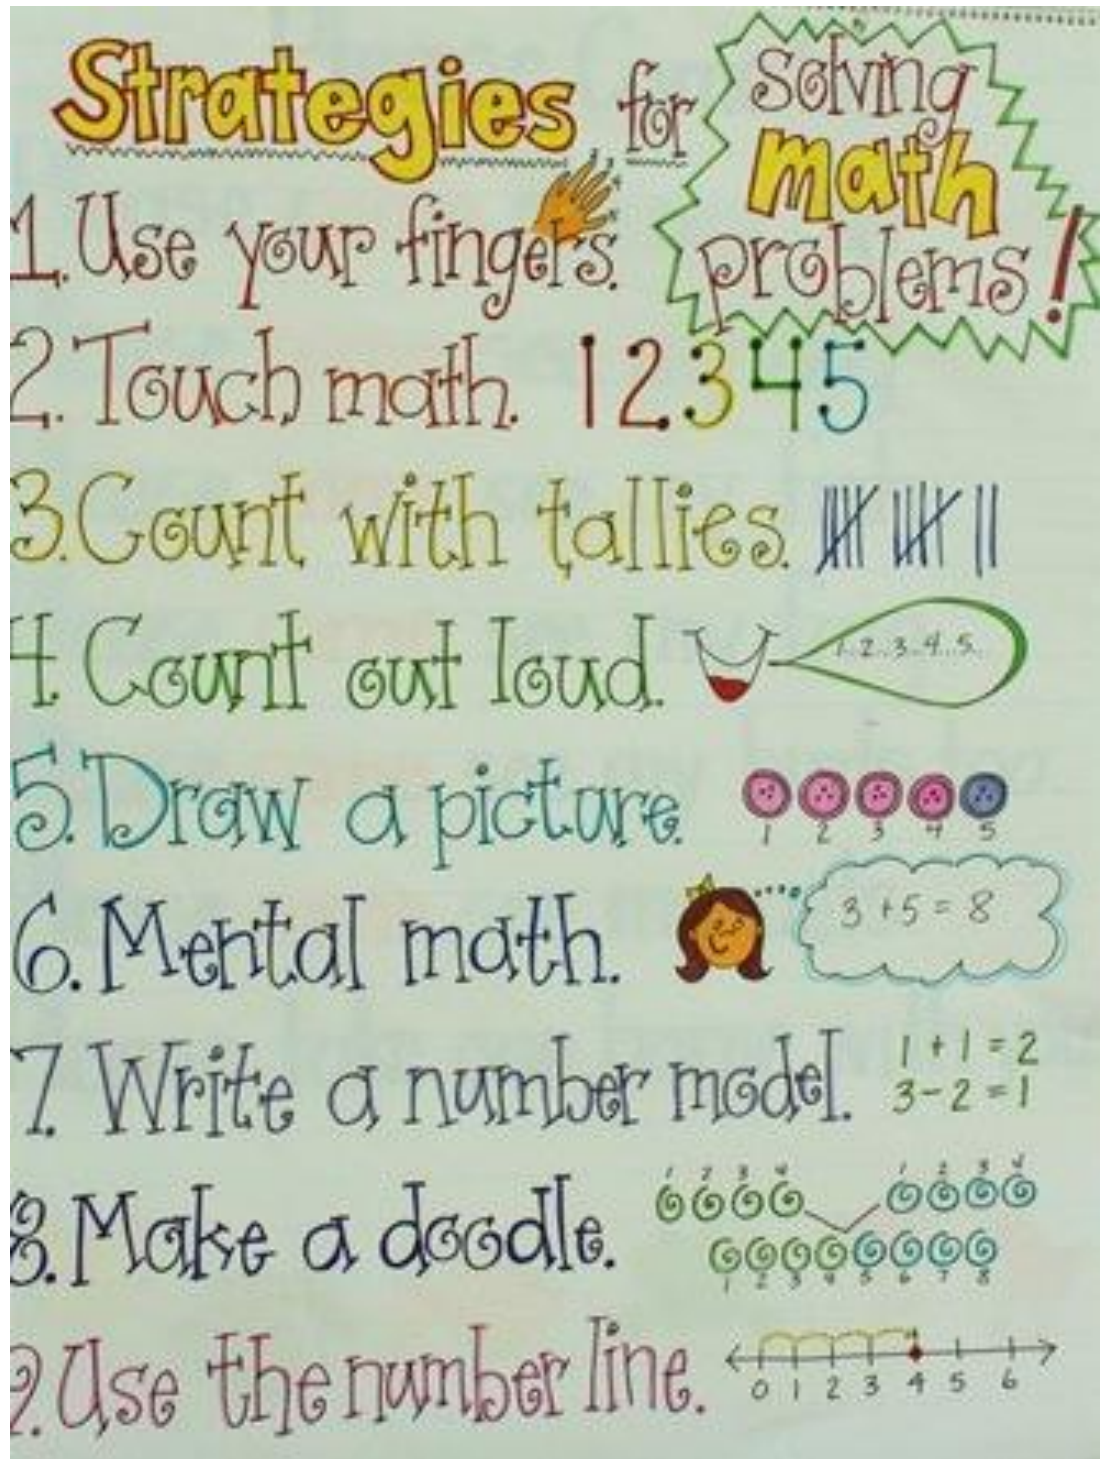 Strategies for solving
math
problems!
1. Use your fingers.
2. Touch math. 1 2 3 4 5
3. Count with tallies.
4. Count out loud. 1..2..3..4..5..
5. Draw a picture.
1 2 3 4 5
6. Mental math. 3 + 5 = 8
7. Write a number model. 1 + 1 = 2
3 - 2 = 1
8. Make a doodle.
1 2 3 4 1 2 3 4
1 2 3 4 5 6 7 8
9. Use the number line.
0 1 2 3 4 5 6